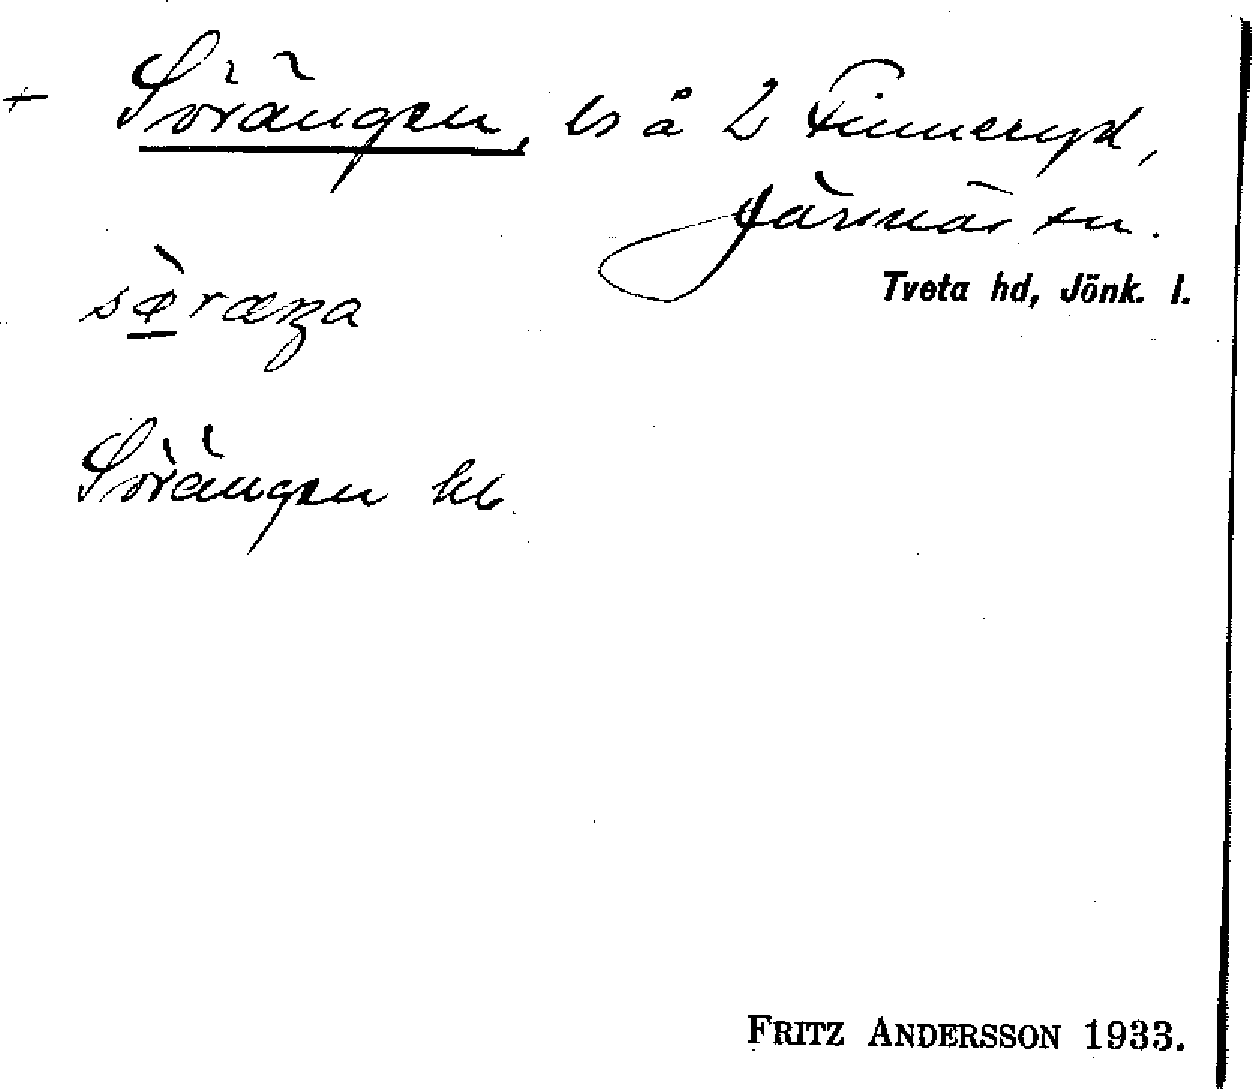 + Sörängen, ls å 2 Finneryd,
Järsnäs sn.
Tveta hd, Jönk. l.
sø̀ræŋa
Sörängen kb.
FRITZ ANDERSSON 1933.